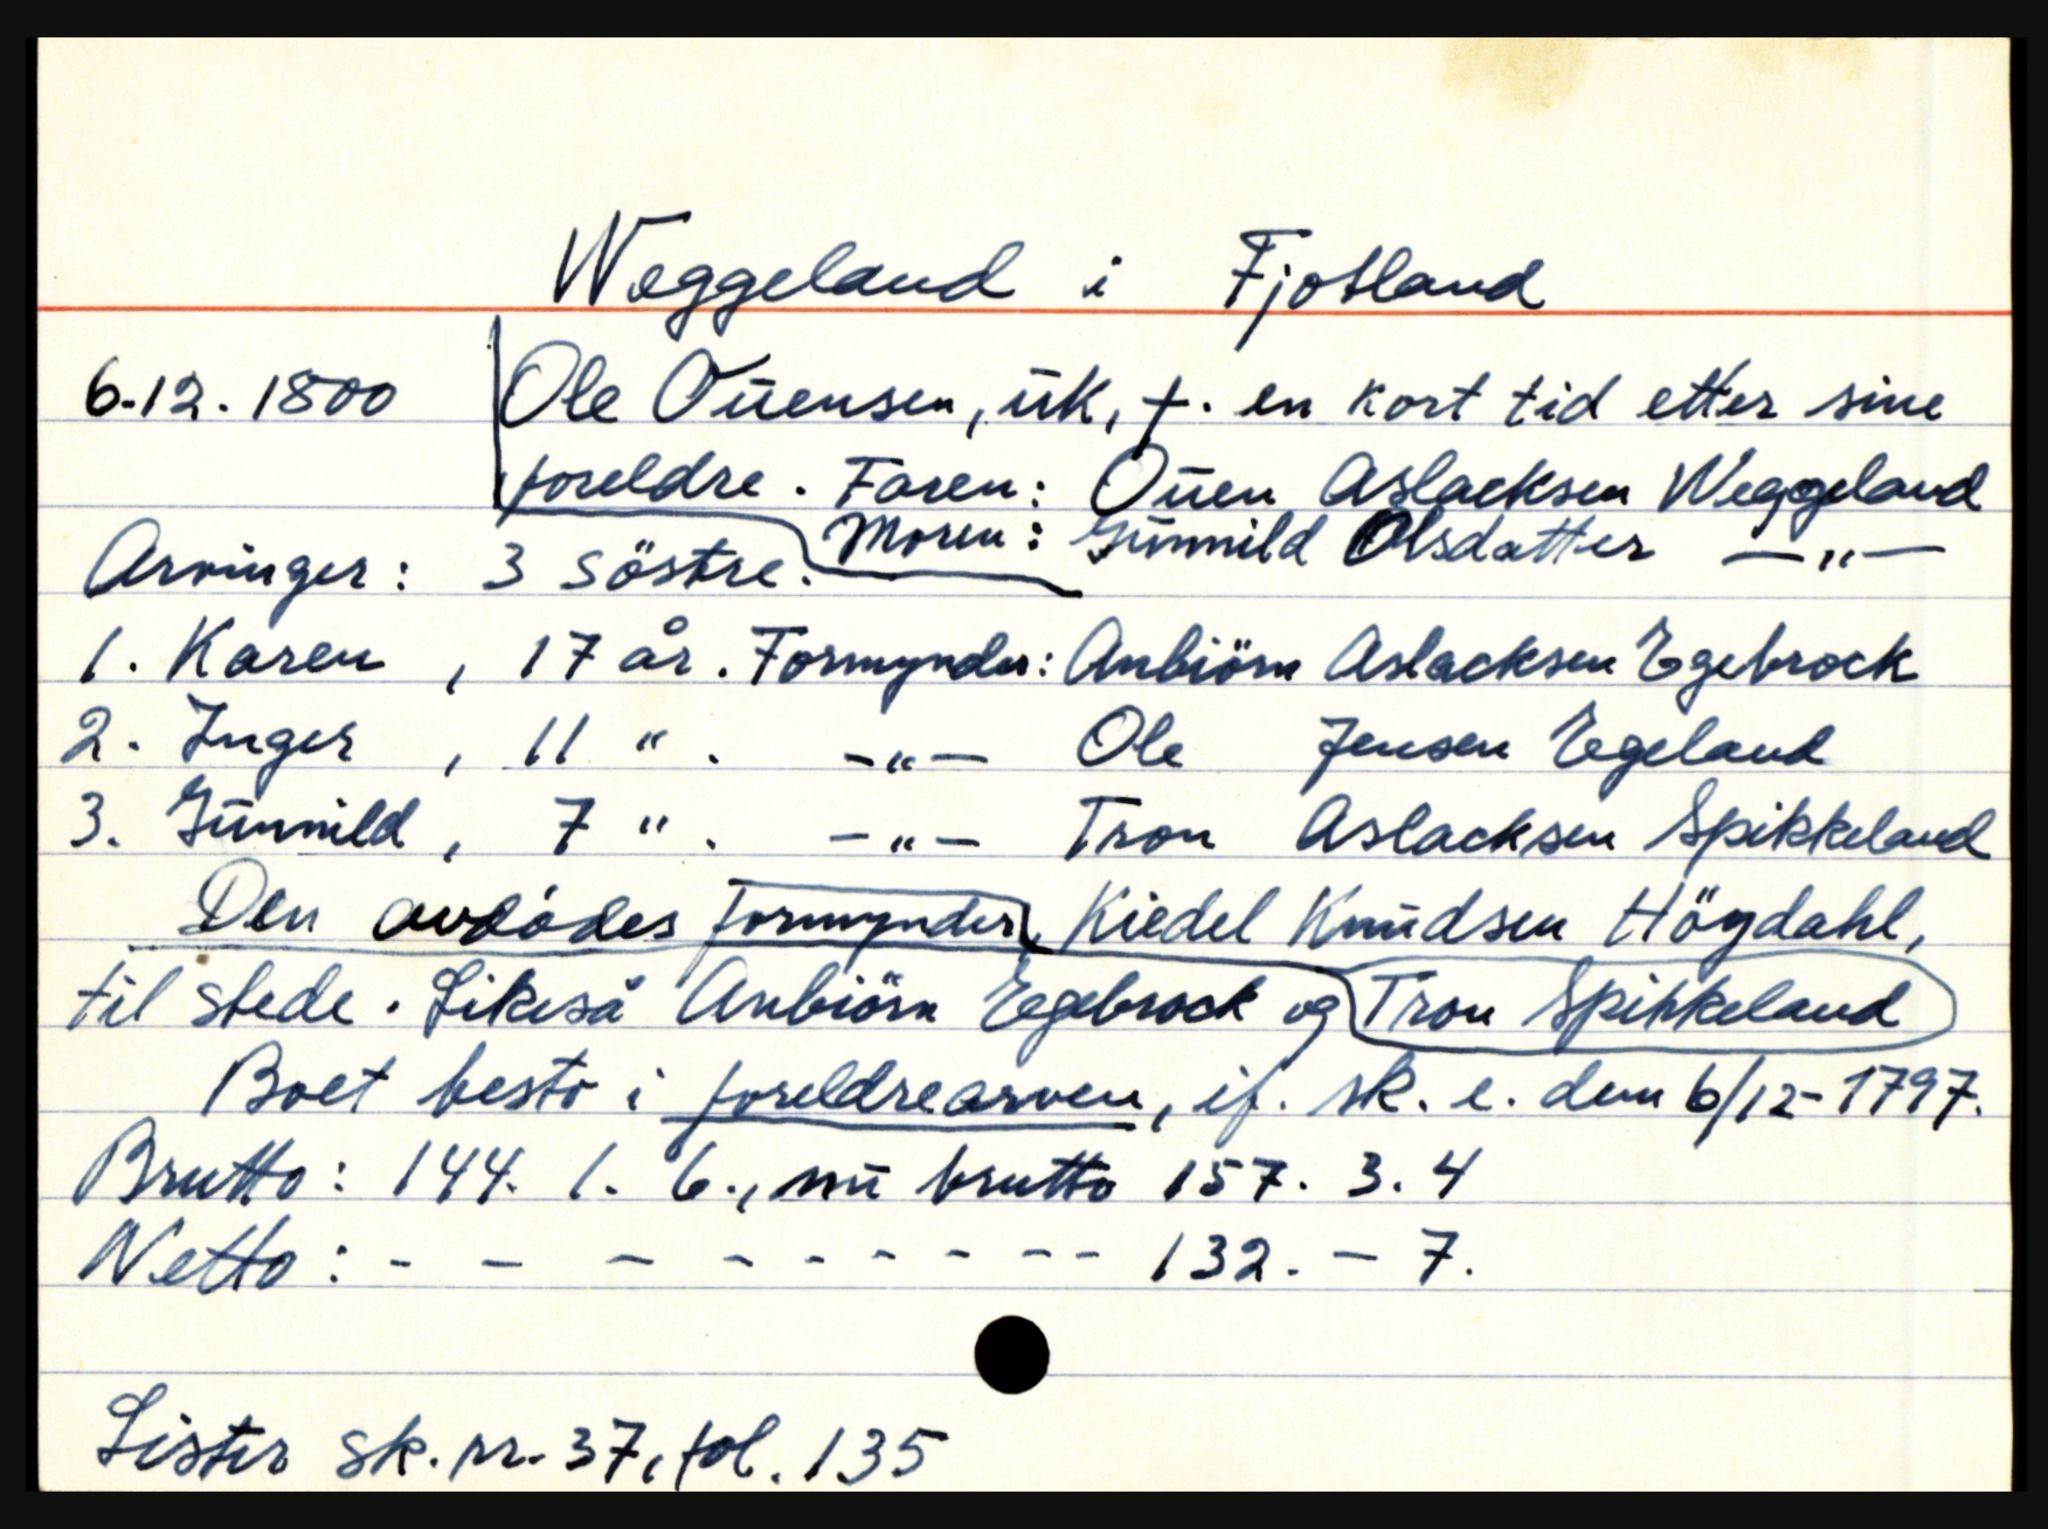 Weggeland i Fjotland
6.12.1800 Ole Ouensen, uk, †. en kort tid etter sine
foreldre. Faren: Ouen Aslacksen Weggeland
Moren: Gunnild Olsdatter —„—
Arvinger: 3 söstre.
1. Karen, 17 år. Formynder: Anbiörn Aslacksen Egebrock
2. Inger, 11 ". —„— Ole Jensen Egeland
3. Gunnild, 7 ". —„— Tron Aslacksen Spikkeland
Den avdödes formynder, Kiedel Knudsen Högdahl,
til stede. Likeså Anbiörn Egebrock og Tron Spikkeland
Boet besto i foreldrearven, if. sk. e. dem 6/12-1797.
Brutto: 144. 1. 6., nu brutto 157. 3. 4
Netto: - - - - - - - - - - 132. - 7.
Lister sk. nr. 37, fol. 135